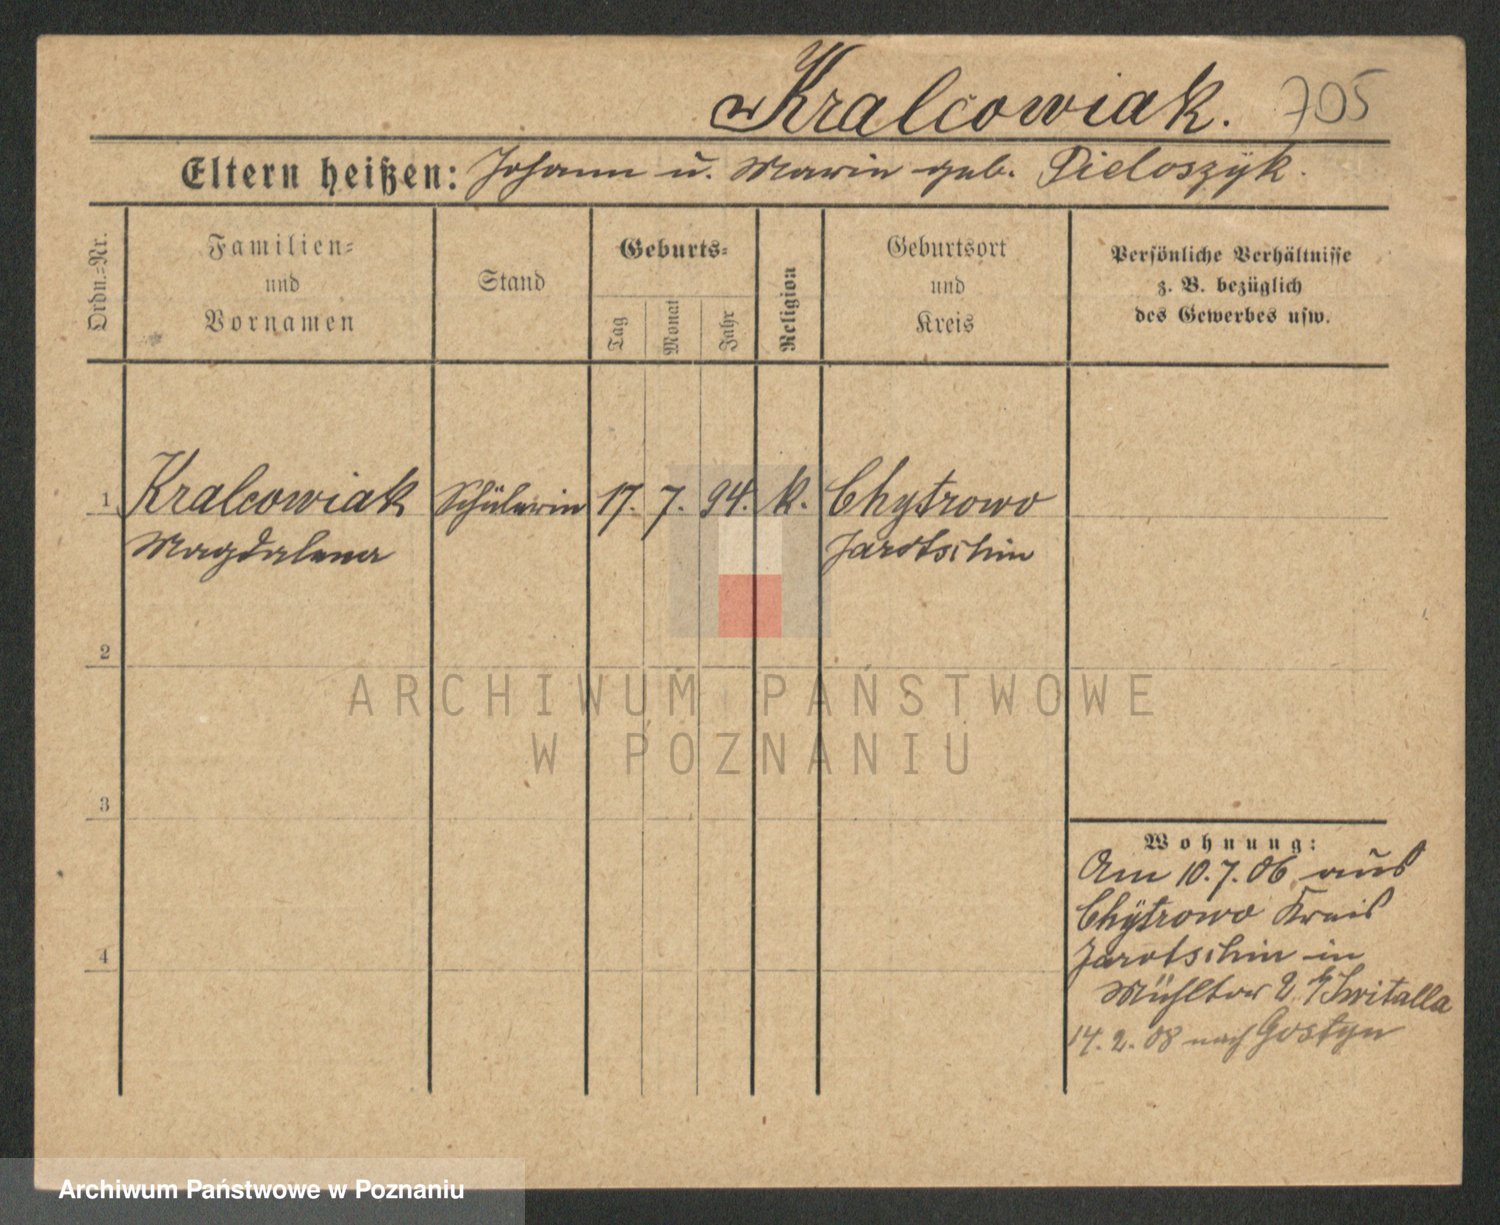 Kralcowiak. 705
Eltern heißen: Johann u. Marie geb. Pieloszyk.
Ordn.=Nr.
Familien=
und
Vornamen
Stand
Geburts=
Tag
Monat
Jahr
Religion
Geburtsort
und
Kreis
Persönliche Verhältnisse
z. B. bezüglich
des Gewerbes usw.
1 Kralcowiak Schülerin 17. 7. 94. k. Chytrowo
Magdalena Jarotschin
2
3
4
Wohnung:
Am 10.7.06 aus
Chytrowo Kreis
Jarotschin in
Mühltor 2
14.2.08 nach Gostyn
ARCHIWUM PAŃSTWOWE
W POZNANIU
Archiwum Państwowe w Poznaniu